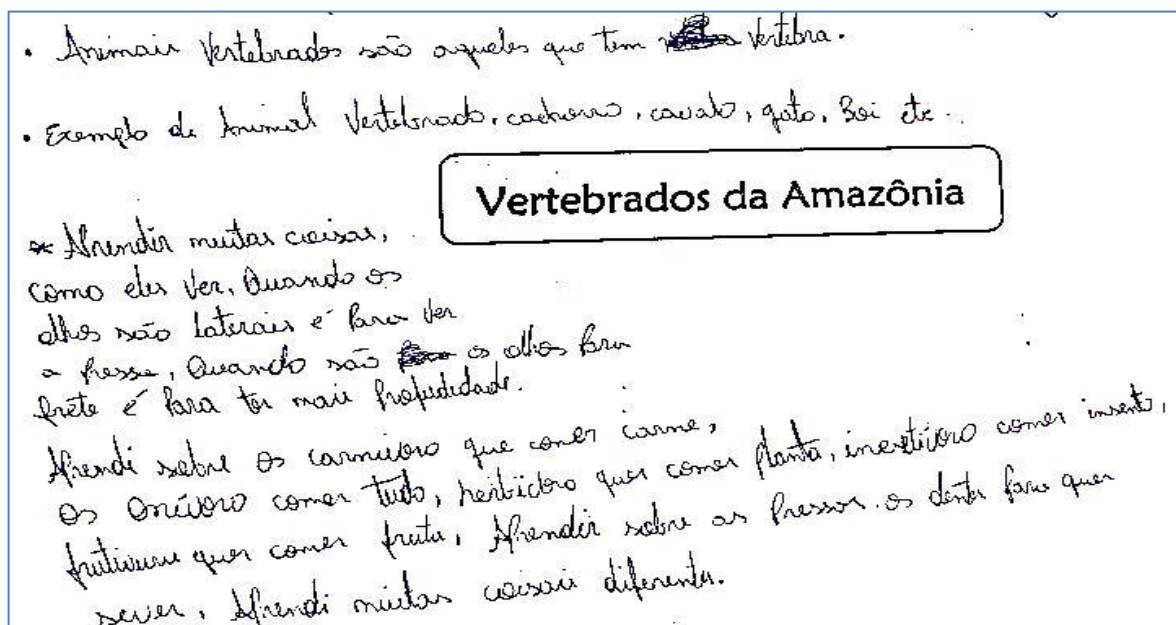 • Animais Vertebrados são aqueles que tem Vertebra.
• Exemplo de Animal Vertebrado, cachorro, cavalo, gato, Boi etc.
Vertebrados da Amazônia
* Aprendir muitas coisas,
como eles ver, Quando os
olhos são laterais é Para ver
a Presse, Quando são os olhos Para
frete é Para ter mais
Aprendi sobre os carnivoro que comer carne,
os Onívoro comer tudo, herbívoro quer comer Planta, comer inseto,
quer comer fruta, Aprendir sobre as Pressas os dentes para quer
sever, Aprendi muitas coisas diferentes.